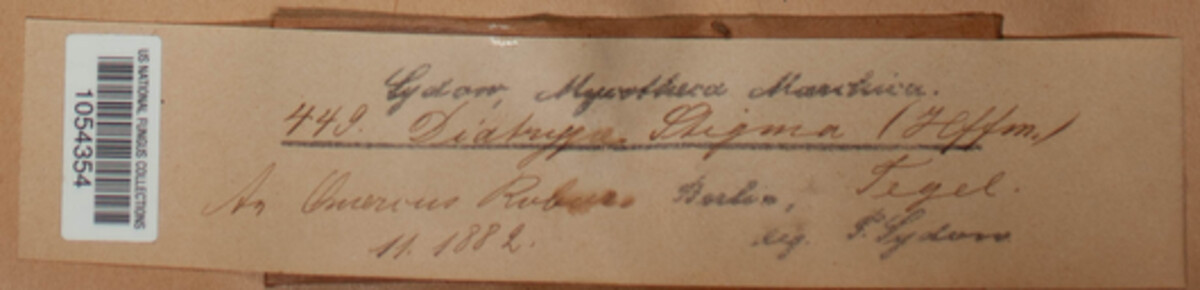 US NATIONAL FUNGUS COLLECTIONS
1054354
Sydow, Mycotheca Marchica.
449. Diatrype Stigma (Hffm.)
An Quercus Robur. Berlin, Tegel.
11. 1882. leg. P. Sydow